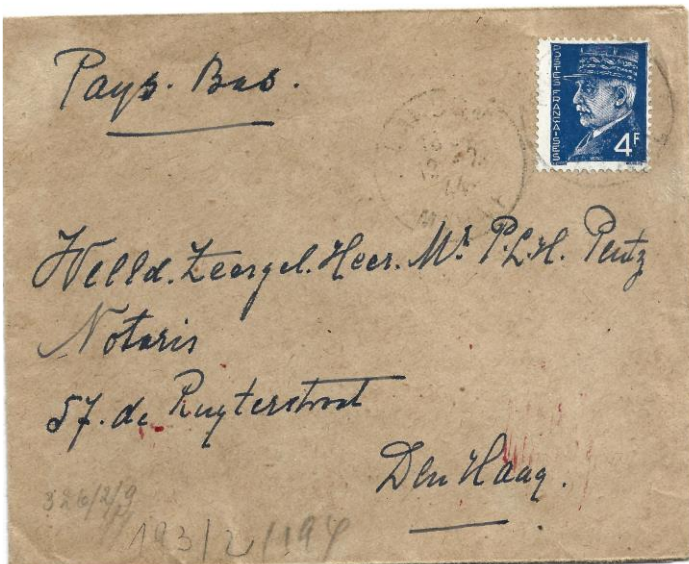 Pays. Bas.
POSTES FRANÇAISES
4F
Welld. Zeergel. Heer. Mr. P.L.H. Pentz
Notaris
57. de Ruyterstraat
Den Haag.
326/2/9
193/2/194